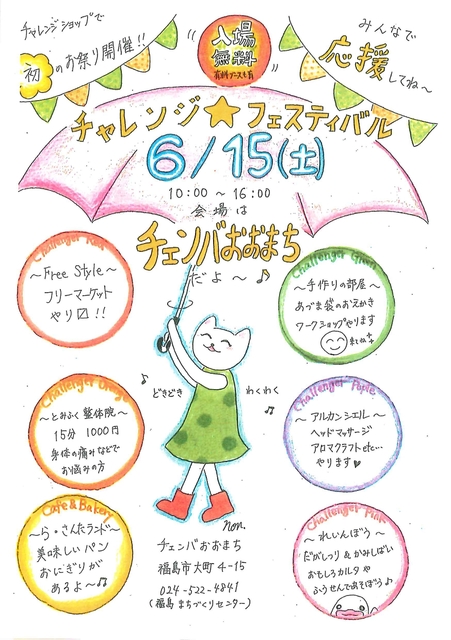 チャレンジショップで
初のお祭り開催!!
入場
無料
有料ブースも有
みんなで
応援してね〜
チャレンジ☆フェスティバル
6/15(土)
10:00〜16:00
会場は
チェンバおおまち
だよ〜♪
Challenger Red
〜Free Style〜
フリーマーケット
やり〼!!
Challenger Green
〜手作りの部屋〜
あづま袋のおえかき
ワークショップやります
来てね
どきどき
わくわく
Challenger Orange
〜とみふく整体院〜
15分 1000円
身体の痛みなどで
お悩みの方
Challenger Purple
〜アルカンシエル〜
ヘッドマッサージ
アロマクラフト etc…
やります♥
Cafe & Bakery
〜ら・さんたランド〜
美味しいパン
おにぎりが
あるよ〜♫
Challenger Pink
〜れいんぼう〜
だがしつり&かみしばい
おもしろカルタや
ふうせんであそぼう♪
non.
チェンバおおまち
福島市大町4-15
024-522-4841
(福島まちづくりセンター)